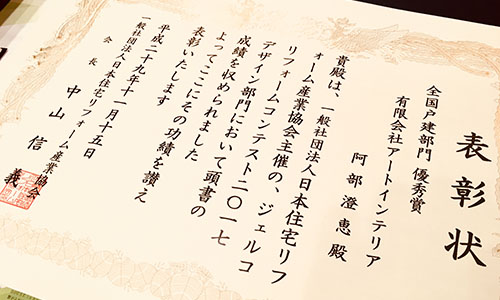 表彰状
全国戸建部門 優秀賞
有限会社アートインテリア
阿部澄恵殿
貴殿は、一般社団法人日本住宅リフ
ォーム産業協会主催の、ジェルコ
リフォームコンテスト二〇一七
デザイン部門において頭書の
成績を収められました
よってここにその功績を讃え
表彰いたします
平成二十九年十一月十五日
一般社団法人日本住宅リフォーム産業協会
会長 中山信義